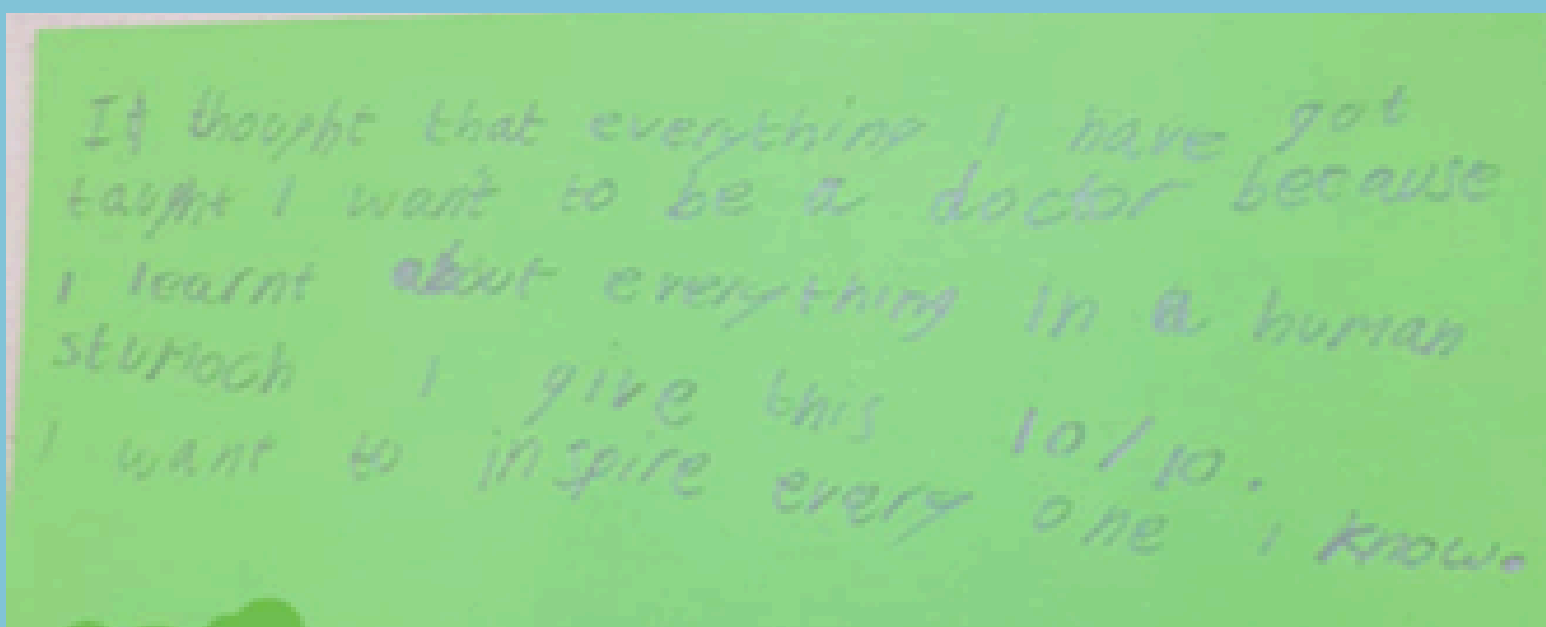 It thought that everything I have got
taught I want to be a doctor because
I learnt about everything in a human
stumoch I give this 10/10.
I want to inspire every one i know.